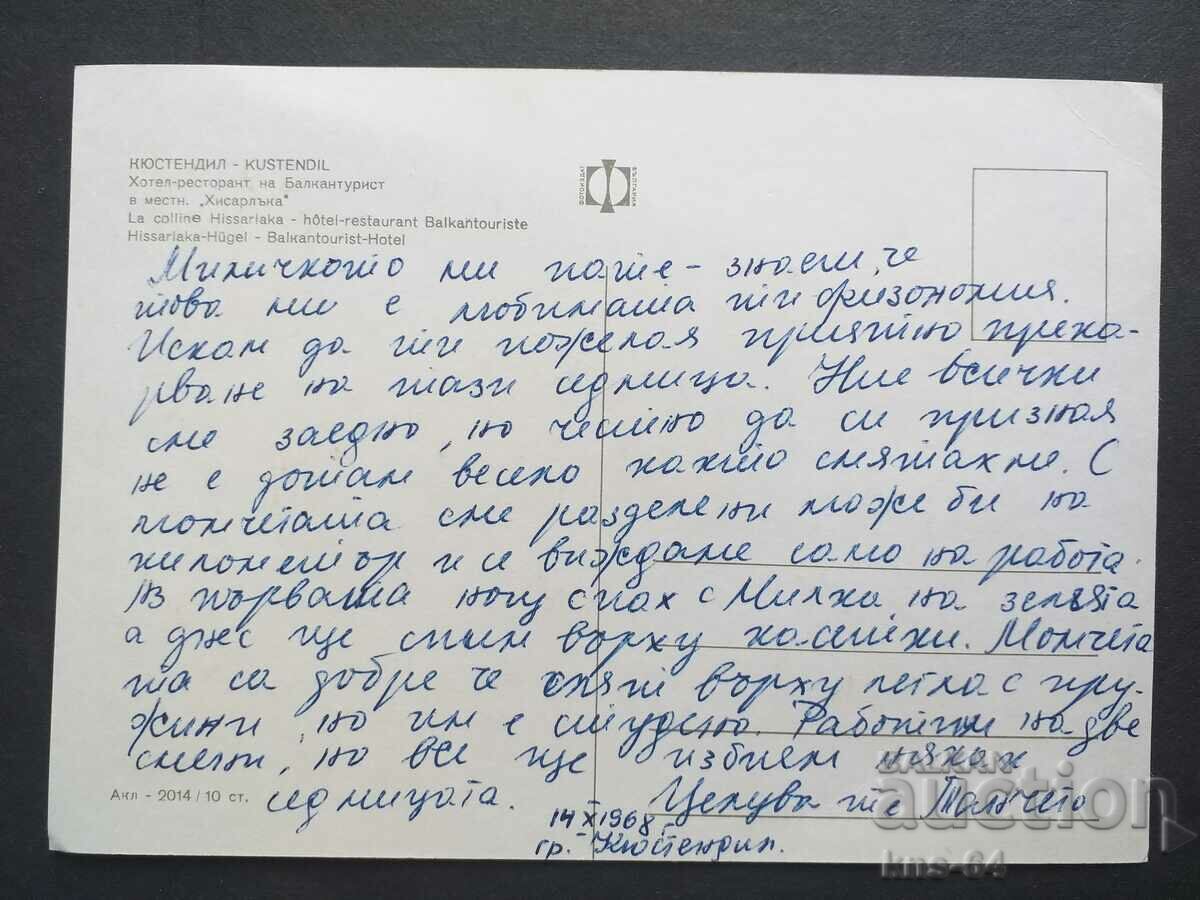 КЮСТЕНДИЛ - KUSTENDIL
Хотел-ресторант на Балкантурист
в местн. „Хисарлъка"
La colline Hissarlaka - hôtel-restaurant Balkantouriste
Hissarlaka-Hügel - Balkantourist-Hotel
ФОТОИЗДАТ
БЪЛГАРИЯ
Миличкото ми пате - знаеш, че
това ми е любимата ти физономия.
Искам да ти пожелая приятно прека-
рване на тази седмица. Ние всички
сме заедно, но честно да си призная
не е дотам весело както смятахме. С
момчетата сме разделени може би на
километър и се виждаме само на работа.
Аз първата нощ спах с Милка на земята
а днес ще спим върху калъчки. Момчета
та са добре че спят върху легла с пру-
жини, но им е студено. Работим на две
смени, но все ще избием някак
седмицата.
Целува те
14 X 1968
гр. Кюстендил.
Акл - 2014 / 10 ст.
BALKAN
auction
kns-64